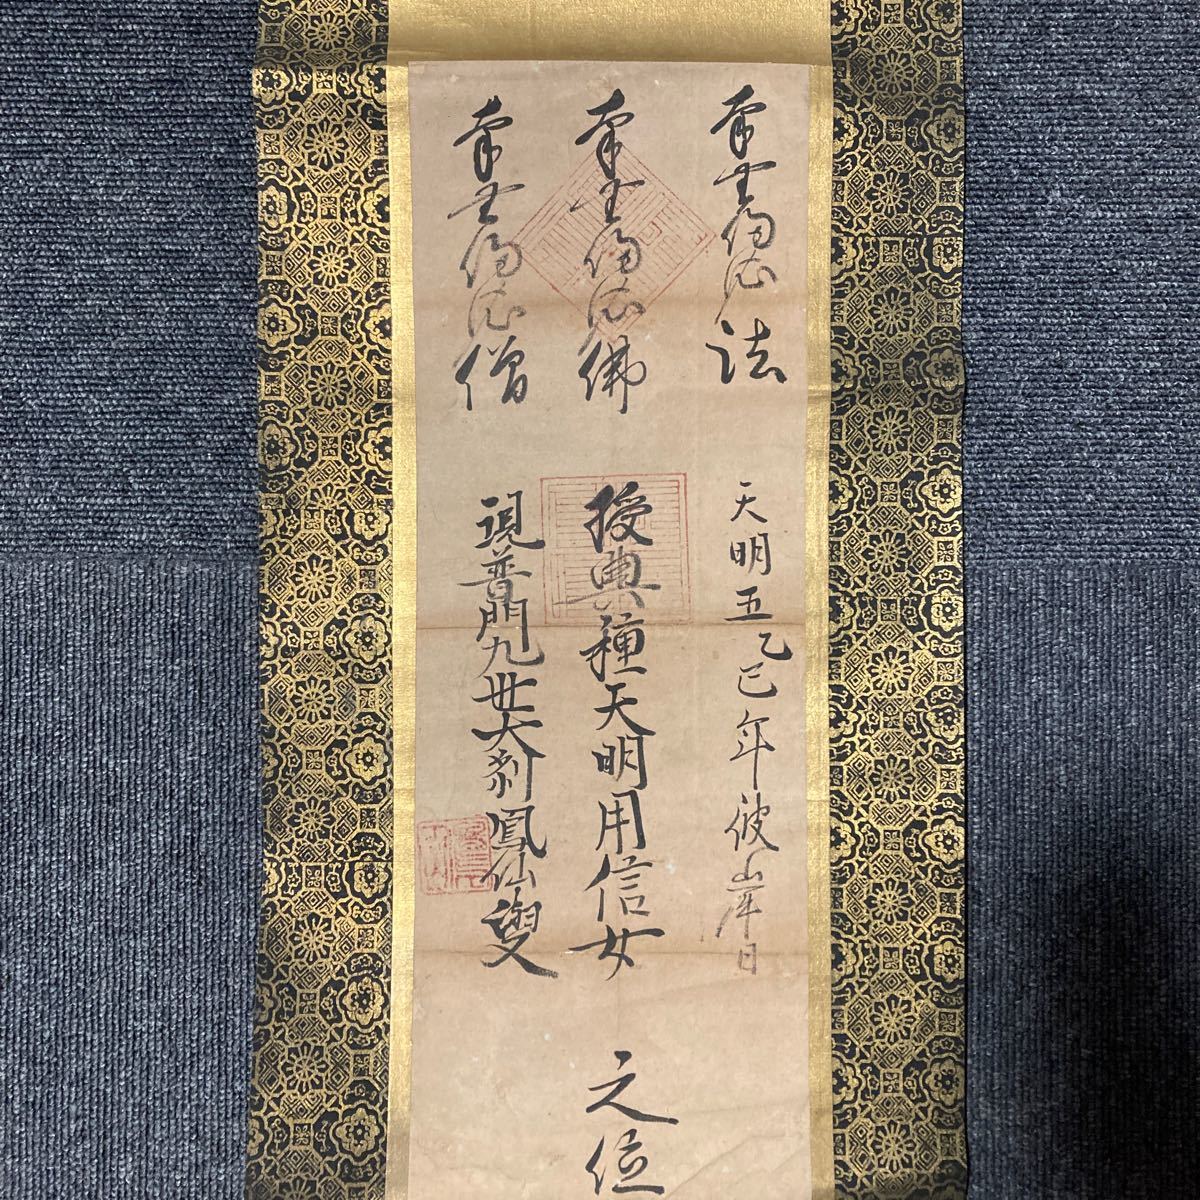 南無歸依法
南無歸依佛
南無歸依僧
天明五乙巳年彼岸日
授與種天明用信女
之位
現普門九世大剎鳳仙叟